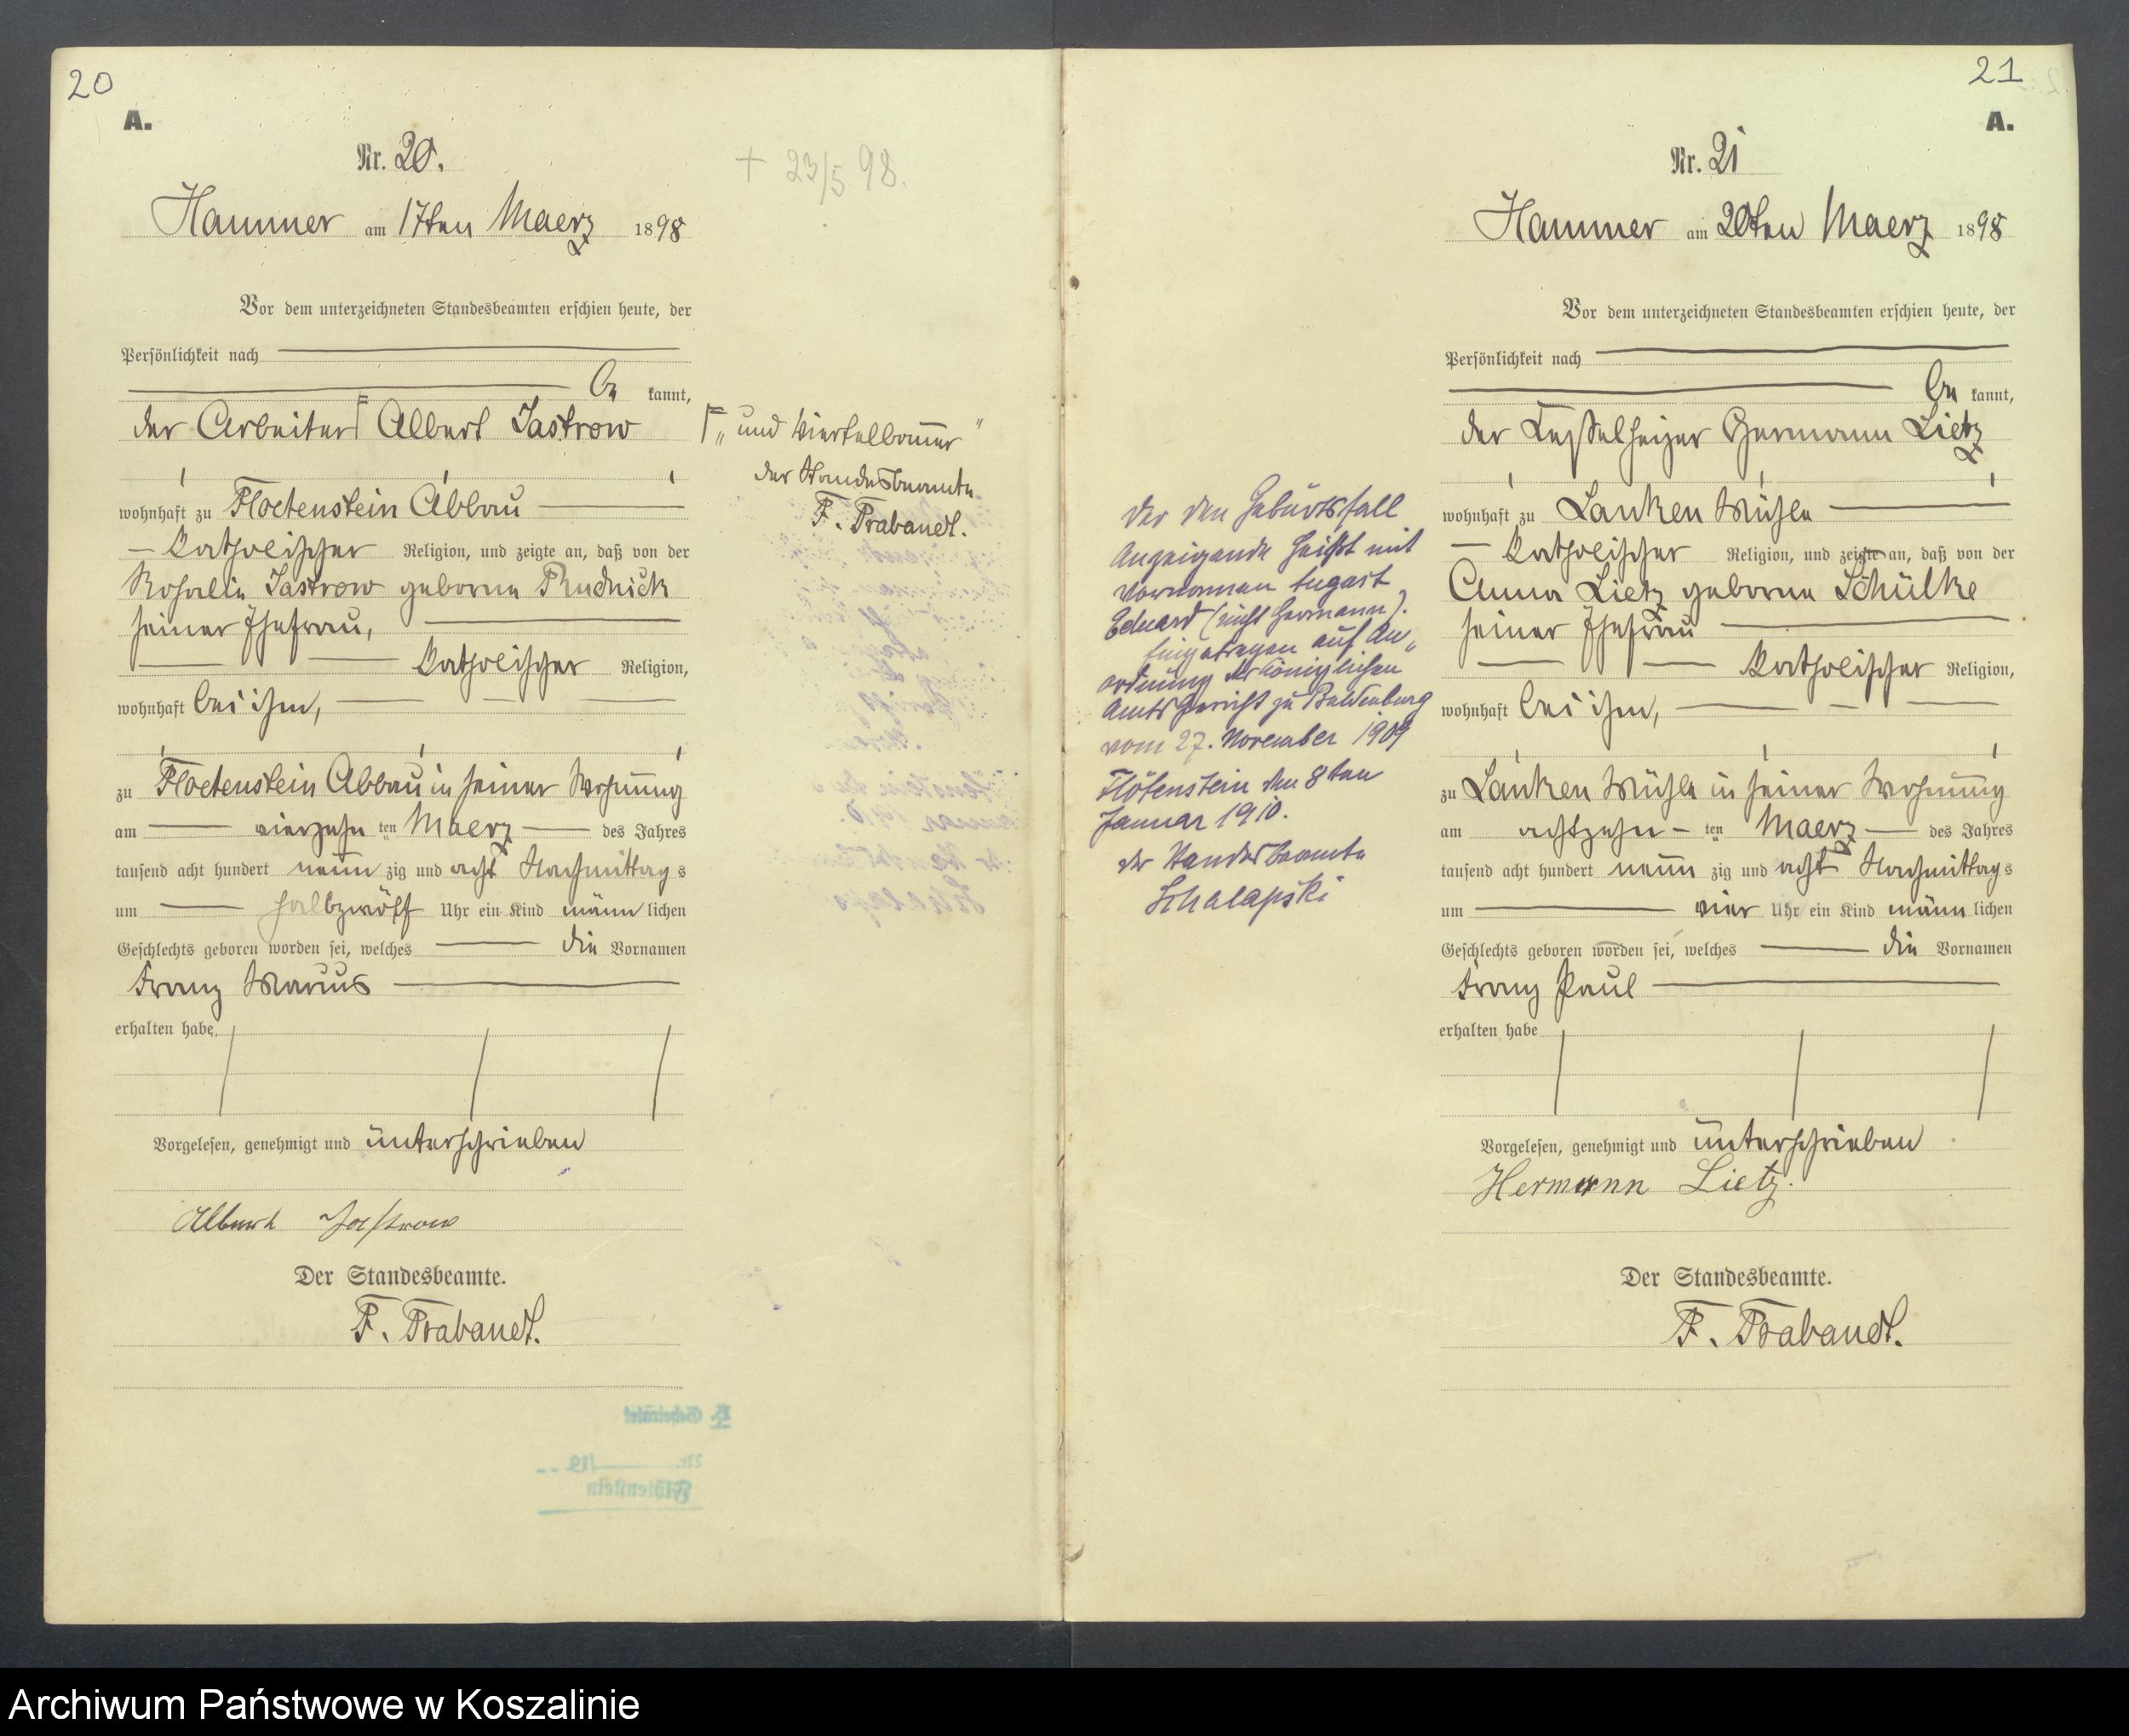 20
A.
Nr. 20.
Hammer am 17ten Maerz 1898
Vor dem unterzeichneten Standesbeamten erschien heute, der
Persönlichkeit nach
be kannt,
der Arbeiter Albert Jastrow
wohnhaft zu Floetenstein Abbau
katholischer Religion, und zeigte an, daß von der
Rosalie Jastrow geborne Rudnick
seiner Ehefrau,
katholischer Religion,
wohnhaft bei ihm,
zu Floetenstein Abbau in seiner Wohnung
am vierzehn ten Maerz des Jahres
tausend acht hundert neun zig und acht Nachmittag s
um halbzwölf Uhr ein Kind männ lichen
Geschlechts geboren worden sei, welches die Vornamen
Franz
erhalten habe.
Vorgelesen, genehmigt und unterschrieben
Albert Jastrow
Der Standesbeamte.
F. Brabandt.
+ 23/5 98.
"und
der Standesbeamte
F. Brabandt.
H. Geheiratet
Nr. /19
Flötenstein
21
A.
Nr. 21
Hammer am 20ten Maerz 1898
Vor dem unterzeichneten Standesbeamten erschien heute, der
Persönlichkeit nach
be kannt,
der Kesselheizer Hermann Lietz
wohnhaft zu Lanken Mühle
katholischer Religion, und zeigte an, daß von der
Anna Lietz geborne Schülke
seiner Ehefrau
katholischer Religion,
wohnhaft bei ihm,
zu Lanken Mühle in seiner Wohnung
am achtzehn ten Maerz des Jahres
tausend acht hundert neun zig und acht Nachmittag s
um vier Uhr ein Kind männ lichen
Geschlechts geboren worden sei, welches die Vornamen
Franz Paul
erhalten habe
Vorgelesen, genehmigt und unterschrieben
Hermann Lietz.
Der Standesbeamte.
F. Brabandt.
Der den Geburtsfall
Anzeigende heißt mit
Vornamen August
Eduard (nicht Hermann).
Eingetragen auf An„
ordnung des Königlichen
Amtsgericht zu Baldenburg
vom 27. November 1909
Flötenstein den 8ten
Januar 1910.
der Standesbeamte
Schalapski
Archiwum Państwowe w Koszalinie